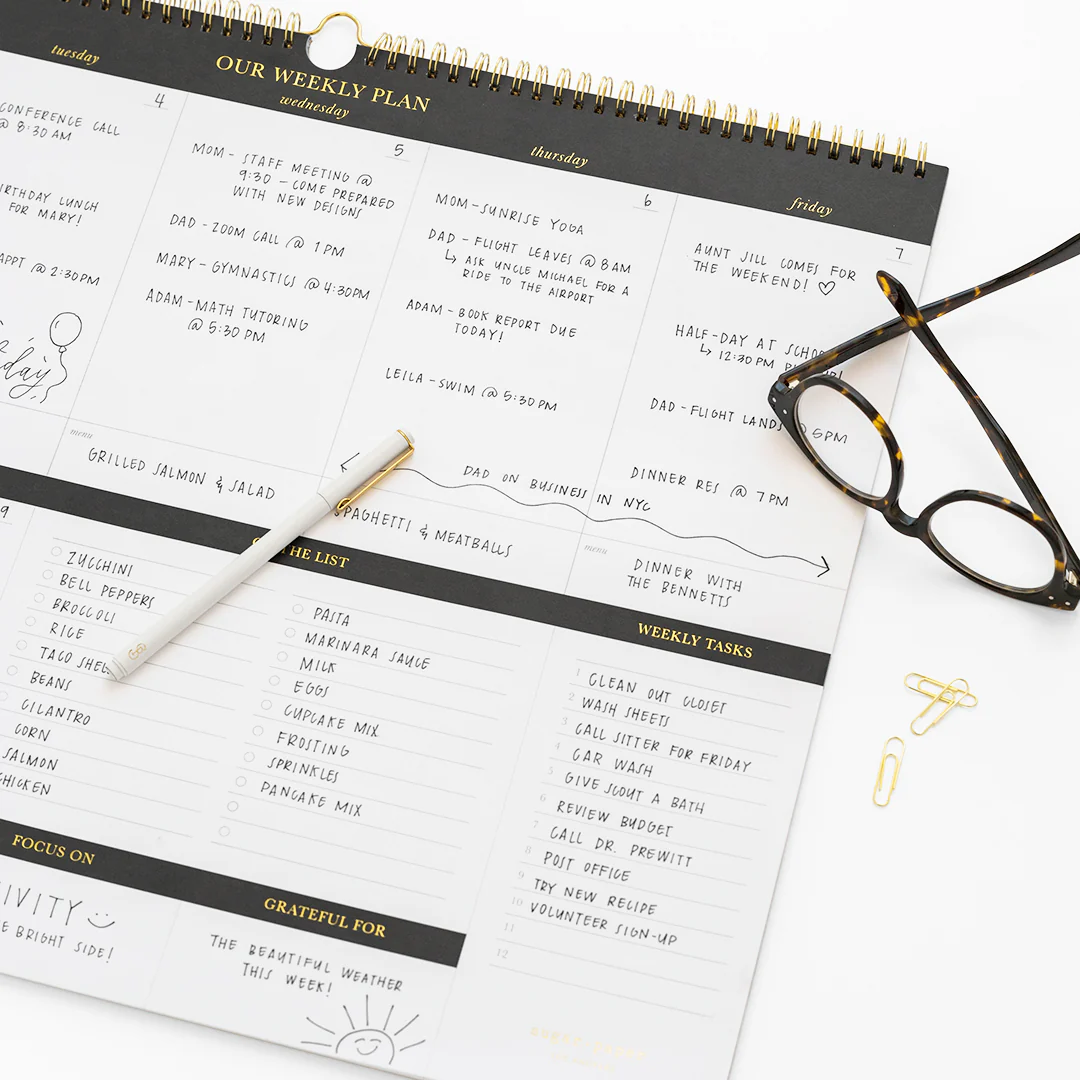 OUR WEEKLY PLAN
tuesday
4
CONFERENCE CALL
@ 8:30 AM
BIRTHDAY LUNCH
FOR MARY!
APPT @ 2:30PM
wednesday
5
MOM - STAFF MEETING @
9:30 - COME PREPARED
WITH NEW DESIGNS
DAD - ZOOM CALL @ 1 PM
MARY - GYMNASTICS @ 4:30PM
ADAM - MATH TUTORING
@ 5:30 PM
menu
GRILLED SALMON & SALAD
thursday
6
MOM - SUNRISE YOGA
DAD - FLIGHT LEAVES @ 8 AM
↳ ASK UNCLE MICHAEL FOR A
RIDE TO THE AIRPORT
ADAM - BOOK REPORT DUE
TODAY!
LEILA - SWIM @ 5:30 PM
DAD ON BUSINESS IN NYC
SPAGHETTI & MEATBALLS
friday
7
AUNT JILL COMES FOR
THE WEEKEND! ♡
HALF-DAY AT SCHOOL
↳ 12:30 PM
DAD - FLIGHT LANDS @ 5PM
DINNER RES @ 7 PM
menu
DINNER WITH
THE BENNETTS
9
ON THE LIST
ZUCCHINI
BELL PEPPERS
BROCCOLI
RICE
TACO SHELLS
BEANS
CILANTRO
CORN
SALMON
CHICKEN
PASTA
MARINARA SAUCE
MILK
EGGS
CUPCAKE MIX
FROSTING
SPRINKLES
PANCAKE MIX
WEEKLY TASKS
1 CLEAN OUT CLOSET
2 WASH SHEETS
3 CALL SITTER FOR FRIDAY
4 CAR WASH
5 GIVE SCOUT A BATH
6 REVIEW BUDGET
7 CALL DR. PREWITT
8 POST OFFICE
9 TRY NEW RECIPE
10 VOLUNTEER SIGN-UP
11
12
FOCUS ON
BRIGHT SIDE!
GRATEFUL FOR
THE BEAUTIFUL WEATHER
THIS WEEK!